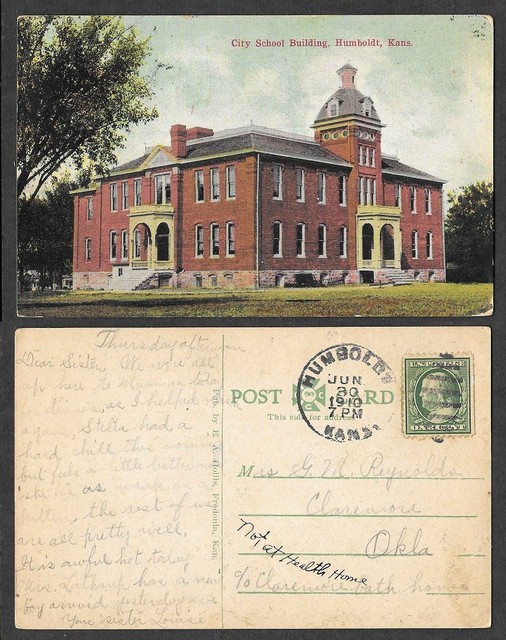 City School Building, Humboldt, Kans.
Thursday afternoon
Dear Sister, We were all
up here to
do as I helped
Stella had a
hard chill this
but feels a little better now
she is as
the rest of us
are all pretty well,
It is awful hot today
Mrs. has a new
boy arrived yesterday
Your sister Louise
Pub. by E. A. Hollis, Fredonia, Kan.
POST CARD
This side for address
HUMBOLDT
JUN
30
1910
7 PM
KANS.
U.S. POSTAGE
ONE CENT
Mrs G. M. Reynolds
Claremore
Okla
Not at Health Home
c/o Claremore bath house